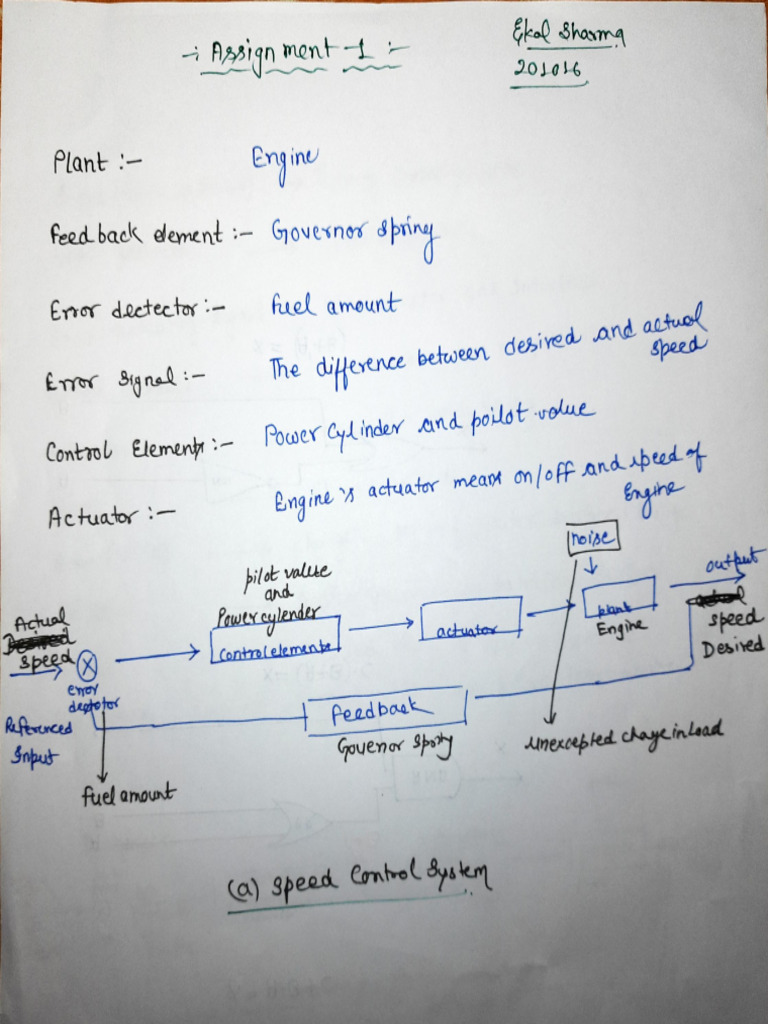 -: Assignment-1 :-
Ekal Sharma
201016
Plant :- Engine
Feedback element :- Governor Spring
Error dectector :- fuel amount
Error Signal :- The difference between desired and actual
speed
Control Elements :- Power Cylinder and poilot value
Actuator :- Engine's actuator means on/off and speed of
Engine
noise
output
pilot value
and
Power cylender
Actual
speed
control elements
actuator
plant
Engine
speed
Desired
error
Referenced
Input
feedback
Governor
unexcepted chage in load
fuel amount
(a) Speed Control System